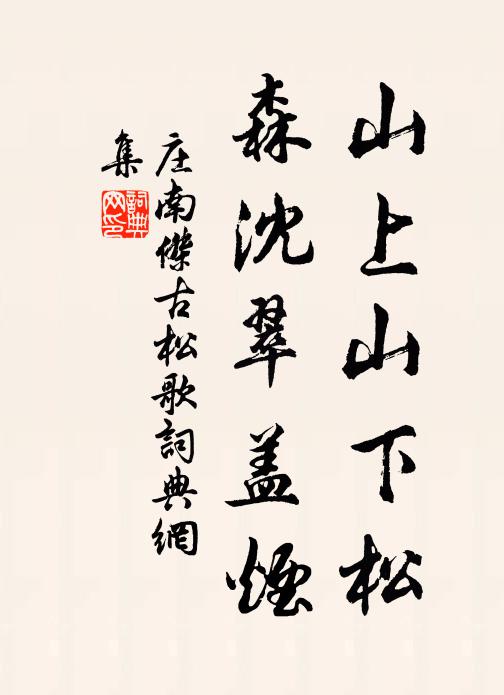 山上山下松
森沈翠盖烟
庄南傑古松歌詞典網
集
詞典網印